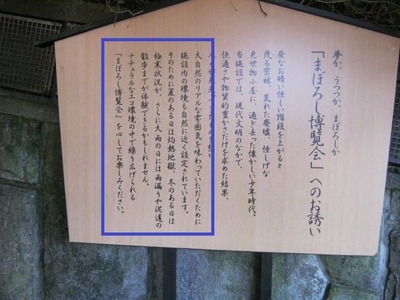 夢か、うつつか、まぼろしか
「まぼろし博覧会」へのお誘い
昼なお暗い怪しい階段を上がると
茂る密林、荒れた廃墟、怪しげな
見世物小屋に、過ぎ去った懐かしい少年時代。
当施設では、現代文明のなかで、
快適さや物質的豊かさだけを求めた結果、
大自然のリアルな雰囲気を味わっていただくために
施設内の環境も自然に近く設定されています。
そのために夏のある日は灼熱地獄、冬のある日は
極寒状況が、さらに大雨の日には雨漏りや泥道の
散歩までが体験できるかもしれません。
ナチュラルなエコ環境の中で繰り広げられる
「まぼろし博覧会」を心してお楽しみください。